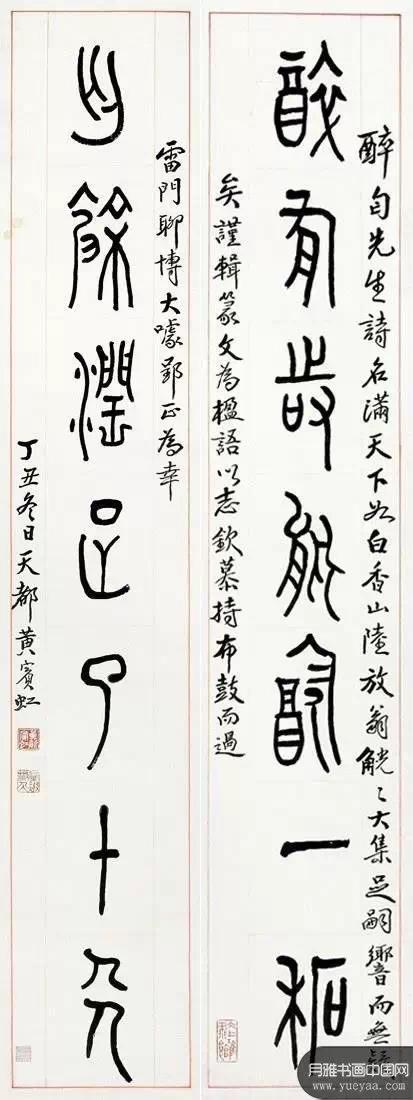 有 能 一
醉 先生詩名滿天下如白香山陸放翁觥〻大集足嗣響而無疑
矣謹輯篆文為楹語以志欽慕持布鼓而過
餘潤足了十人
雷門聊博大噱郢正為幸
丁丑冬日天都黃賓虹
月雅书画中国网
www.yueyaa.com